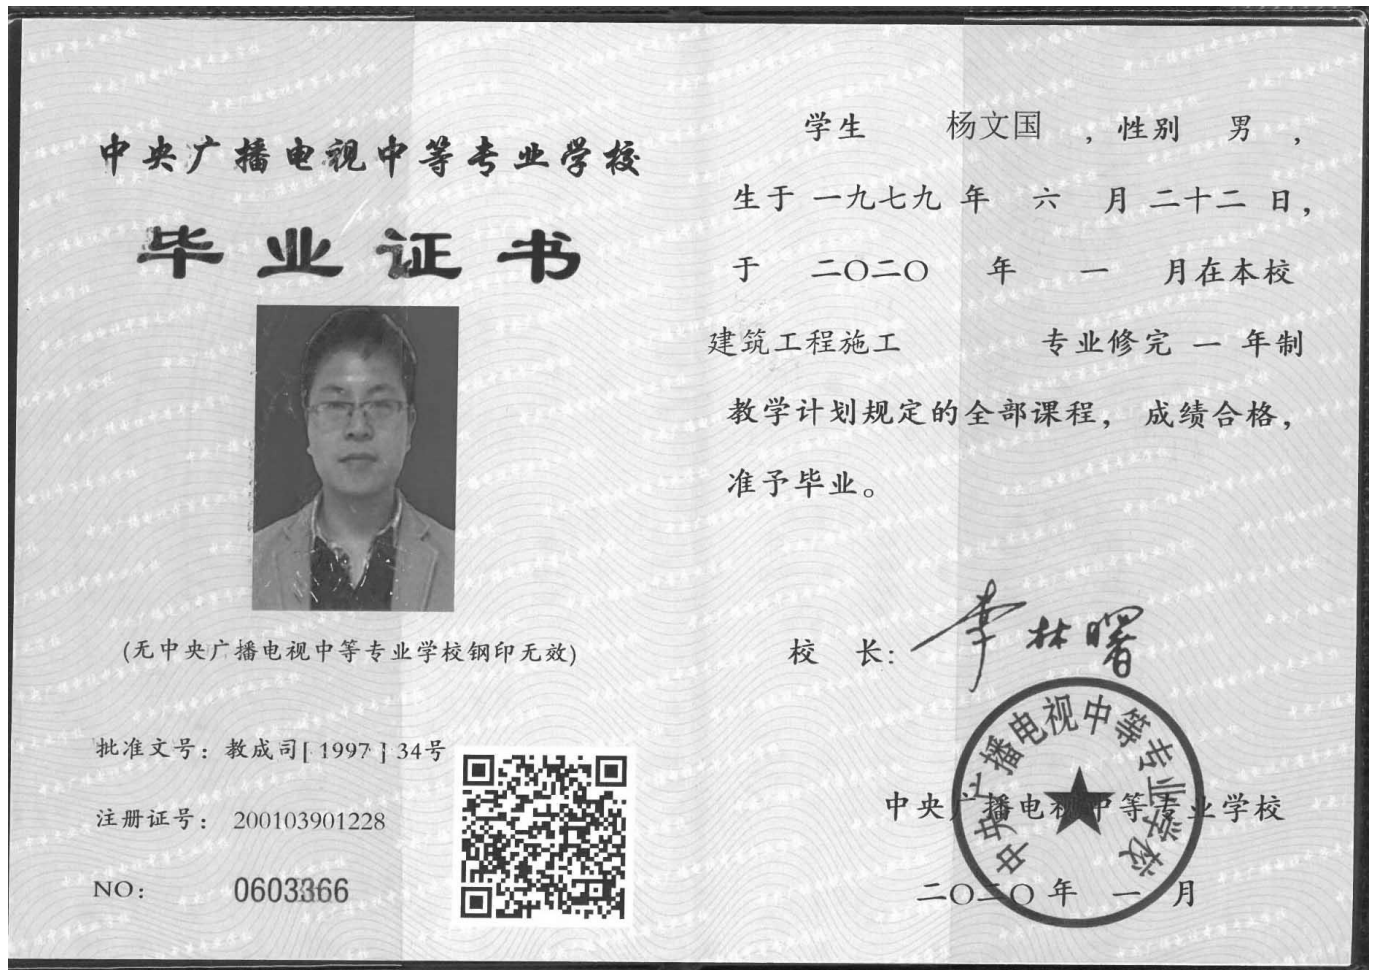 中央广播电视中等专业学校
毕业证书
(无中央广播电视中等专业学校钢印无效)
批准文号：教成司[1997]34号
注册证号：200103901228
NO：0603366
学生 杨文国 ，性别 男 ，
生于 一九七九 年 六 月 二十二 日，
于 二〇二〇 年 一 月在本校
建筑工程施工 专业修完 一 年制
教学计划规定的全部课程，成绩合格，
准予毕业。
校 长：李林曙
中央广播电视中等专业学校
中央广播电视中等专业学校
二〇二〇 年 一 月